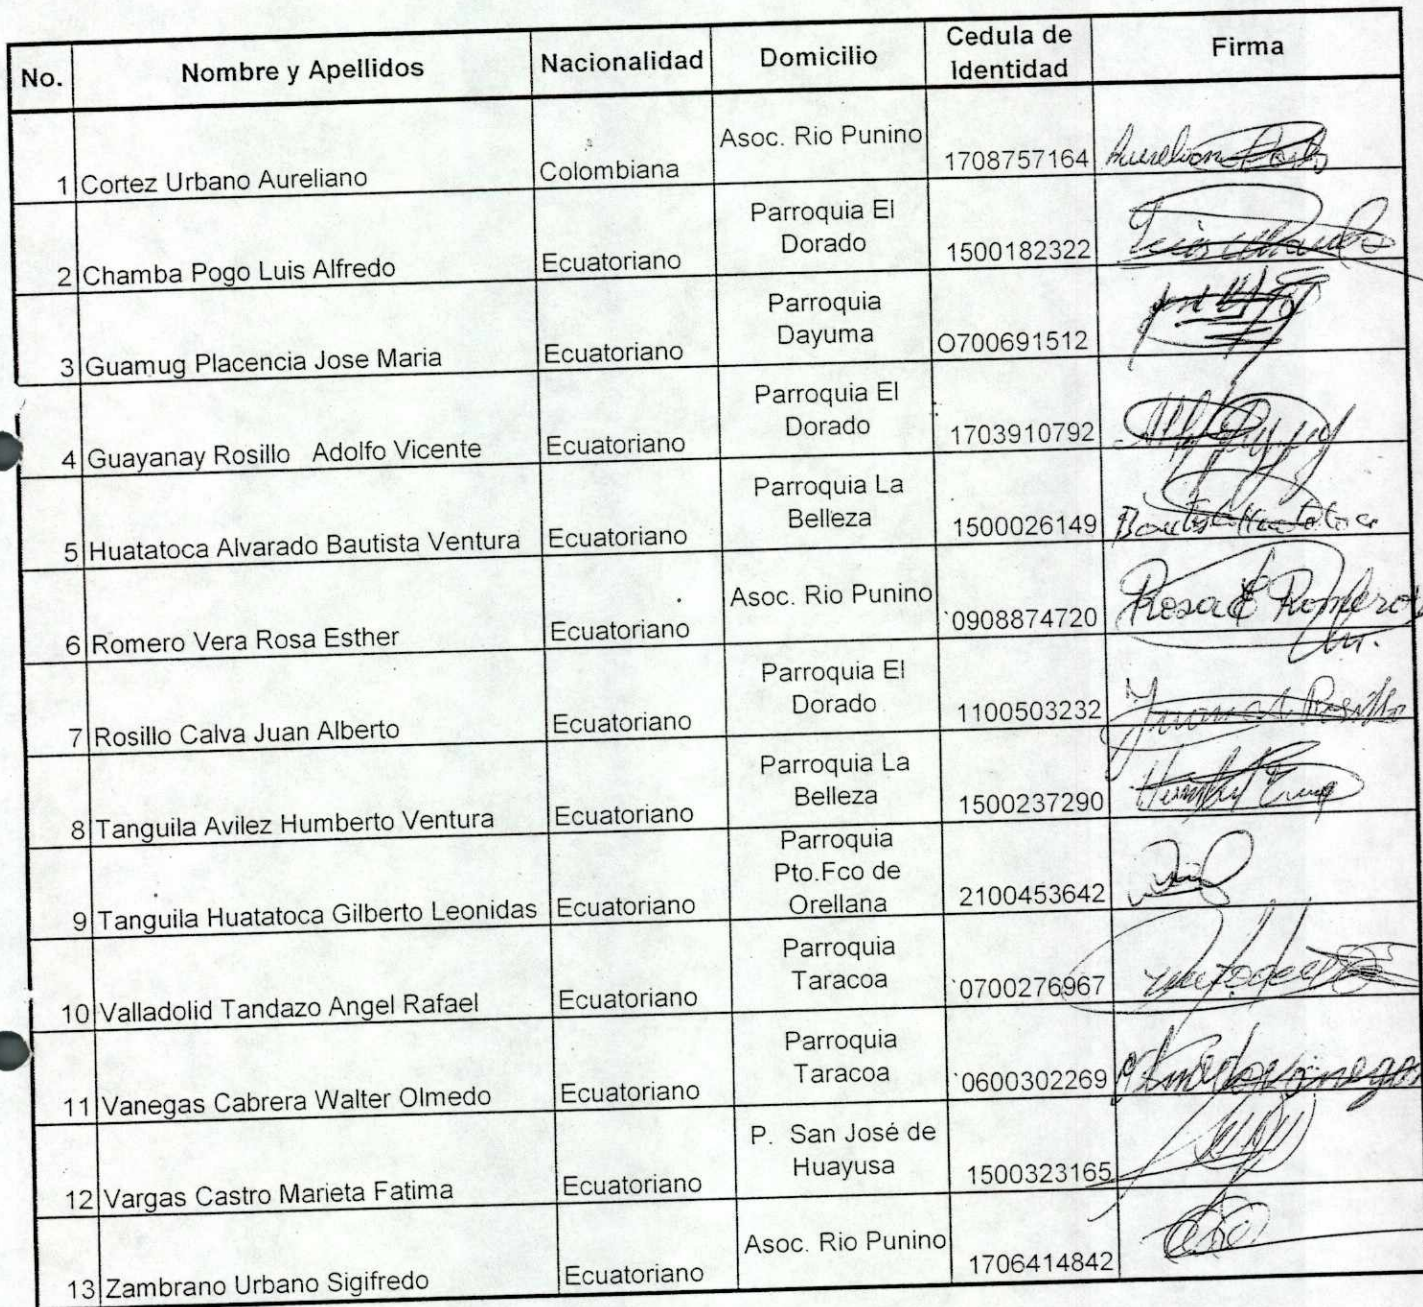 No. Nombre y Apellidos Nacionalidad Domicilio Cedula de Identidad Firma
1 Cortez Urbano Aureliano Colombiana Asoc. Rio Punino 1708757164
2 Chamba Pogo Luis Alfredo Ecuatoriano Parroquia El Dorado 1500182322
3 Guamug Placencia Jose Maria Ecuatoriano Parroquia Dayuma O700691512
4 Guayanay Rosillo Adolfo Vicente Ecuatoriano Parroquia El Dorado 1703910792
5 Huatatoca Alvarado Bautista Ventura Ecuatoriano Parroquia La Belleza 1500026149
6 Romero Vera Rosa Esther Ecuatoriano Asoc. Rio Punino `0908874720 Rosa E Romero
7 Rosillo Calva Juan Alberto Ecuatoriano Parroquia El Dorado 1100503232
8 Tanguila Avilez Humberto Ventura Ecuatoriano Parroquia La Belleza 1500237290
9 Tanguila Huatatoca Gilberto Leonidas Ecuatoriano Parroquia Pto.Fco de Orellana 2100453642
10 Valladolid Tandazo Angel Rafael Ecuatoriano Parroquia Taracoa `0700276967
11 Vanegas Cabrera Walter Olmedo Ecuatoriano Parroquia Taracoa `0600302269
12 Vargas Castro Marieta Fatima Ecuatoriano P. San José de Huayusa 1500323165
13 Zambrano Urbano Sigifredo Ecuatoriano Asoc. Rio Punino 1706414842